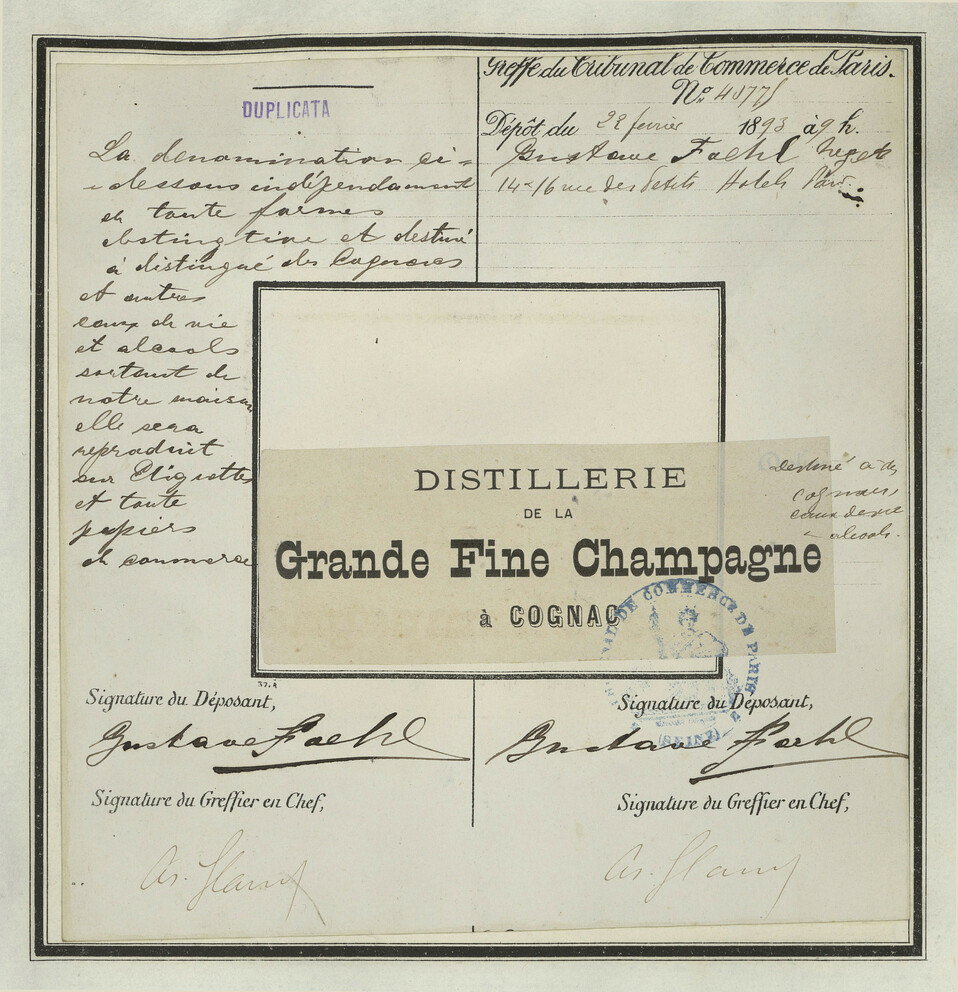 DUPLICATA
La denamination ci-
dessous indépendament
en toute formes
distingtive et destiné
à distingué des Cognacs
et autres
eaux de vie
et alcools
sortant de
notre maison
elle sera
reproduit
sur Etiquettes
et toute
papiers
de commerce
Greffe du Tribunal de Commerce de Paris.
No
Dépôt du 22 fevrier 1893 à 9 h.
Gustave Faehl Negot
14-16 rue des Petits Hotels Paris
DISTILLERIE
DE LA
Grande Fine Champagne
à COGNAC
destiné à des
cognacs,
eaux de vie
alcools.
TRIBUNAL DE COMMERCE DE PARIS
(SEINE)
Signature du Déposant,
Gustave Faehl
Signature du Greffier en Chef,
Signature du Déposant,
Gustave Faehl
Signature du Greffier en Chef,